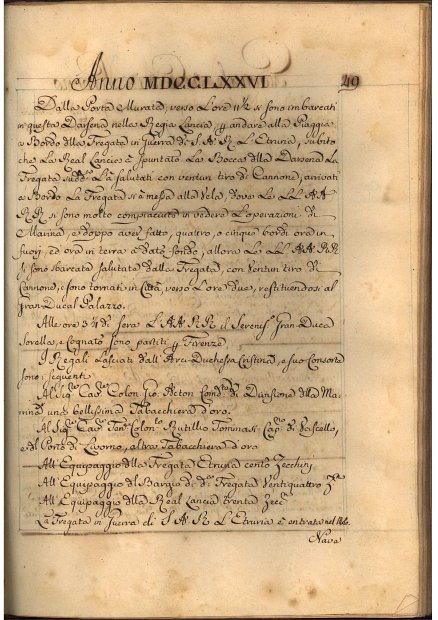 Anno MDCCLXXVI 49
Dalla Porta Murata, verso L'ore 11½ si sono imbarcati
in questa Darsena nella Regia Lancia, p andare alla Piaggia
a Bordo dlla Fregata in Guerra di S. A. R. L'Etruria, subito
che La Real Lancia è spuntato La Bocca dlla Darsena La
Fregata sudda. Là salutati con ventun tiro di Cannone, arrivati
a Bordo La Fregata si è messa alla Vela, dove Le LL AA
RR si sono molto compiaciute in vedere L'operazioni di
Marina, e doppo aver fatto, quattro, o cinque bordi ora in
fuori, ed ora in terra a dato fondo, allora Le LL AA RR
si sono sbarcate salutate dalla Fregata, con Ventun tiro di
Cannone, e sono tornati in Città, verso L'ore due, restituendosi al
Gran Ducal Palazzo.
Alle ore 3¼ di sera L AA RR il Serenis. Gran Duca
Sorella, e Cognato sono partiti p Firenze,
I Regali Lasciati dall'Arci-Duchessa Cristina, e suo Consorte
sono i seguenti
Al Sigr. Cavr. Colon. Gio. Acton Comdte. di Divisione dlla Ma-
rina una bellissima Tabacchiera d'oro.
Al Sigr. Cavr. Ten. Colonlo. Rutillio Tommasi Capno. di Vascello,
e del Porto di Livorno, altra Tabacchiera d'oro
All'Equipaggio dlla Fregata Etruria cento Zecchini
All'Equipaggio del Bargio di da. Fregata Ventiquattro Zni
All'Equipaggio dlla Real Lancia trenta Zecc.
La Fregata in Guerra di S A R L Etruria è entrata nel Molo.
Nava